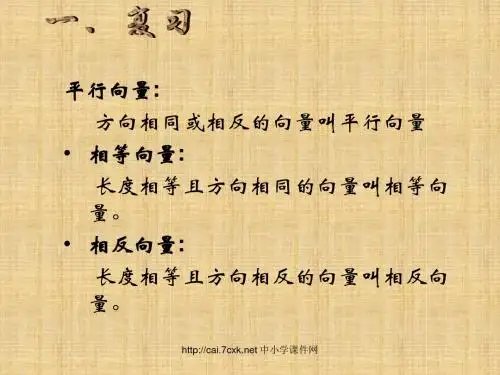 一、复习
平行向量：
方向相同或相反的向量叫平行向量
• 相等向量：
长度相等且方向相同的向量叫相等向
量。
• 相反向量：
长度相等且方向相反的向量叫相反向
量。
http://cai.7cxk.net 中小学课件网